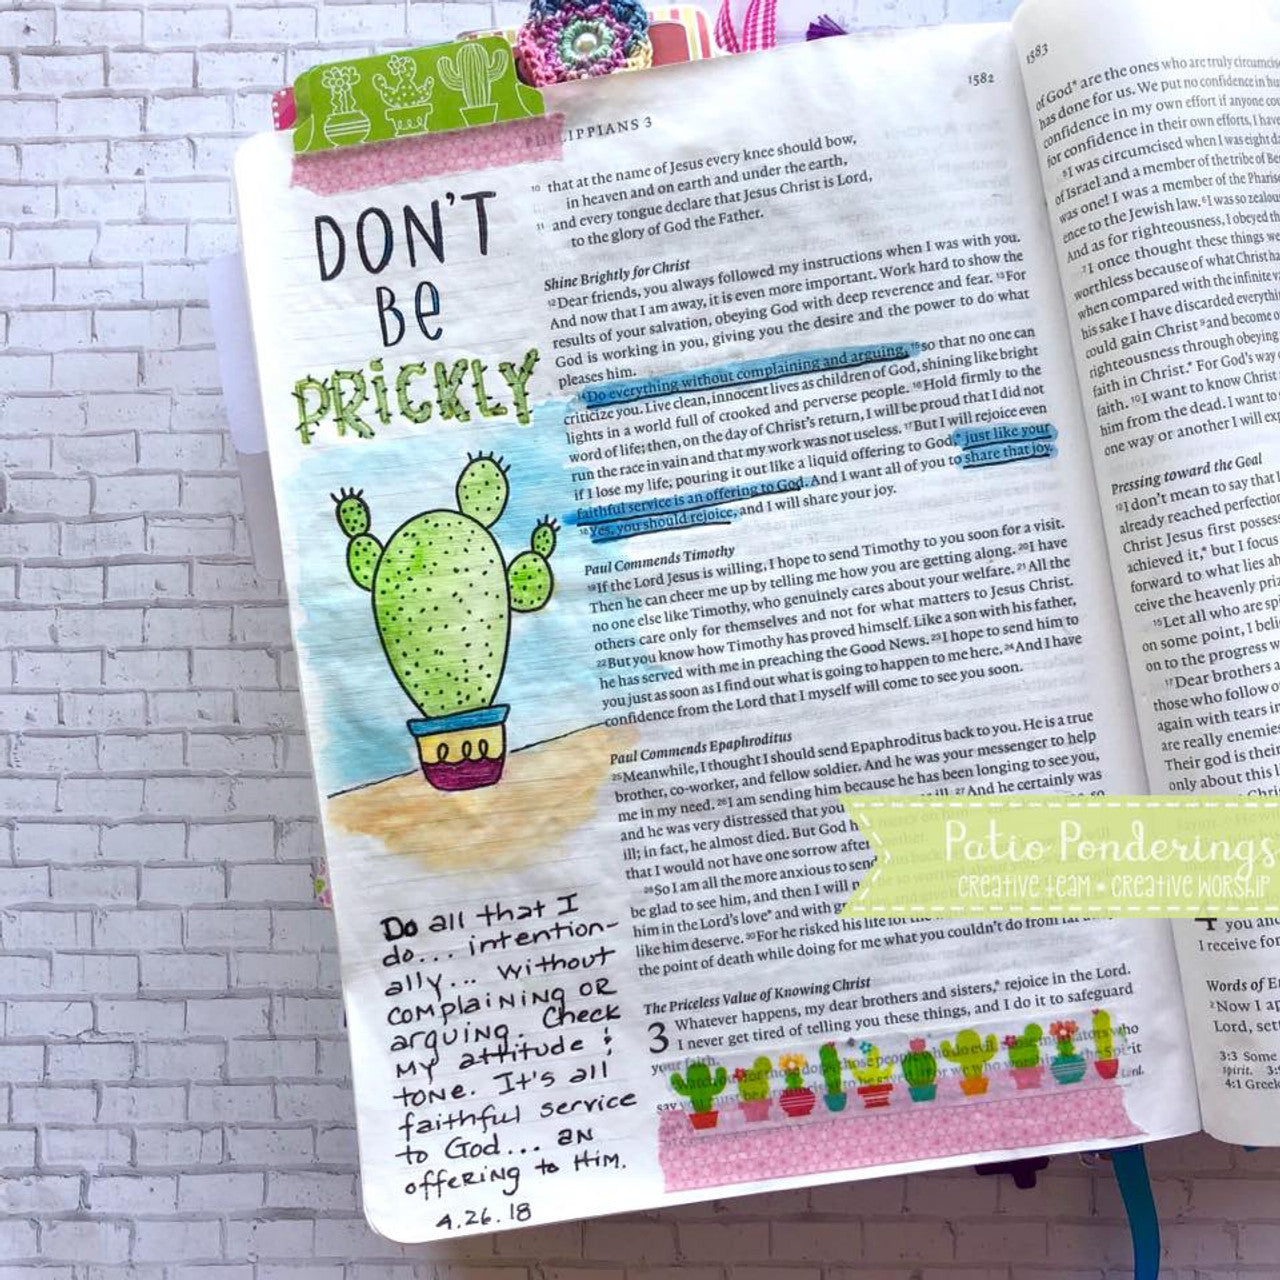 1582
PHILIPPIANS 3
DON'T
Be
PRiCKLY
10 that at the name of Jesus every knee should bow,
in heaven and on earth and under the earth,
11 and every tongue declare that Jesus Christ is Lord,
to the glory of God the Father.
Shine Brightly for Christ
12Dear friends, you always followed my instructions when I was with you.
And now that I am away, it is even more important. Work hard to show the
results of your salvation, obeying God with deep reverence and fear. 13For
God is working in you, giving you the desire and the power to do what
pleases him.
14Do everything without complaining and arguing, 15so that no one can
criticize you. Live clean, innocent lives as children of God, shining like bright
lights in a world full of crooked and perverse people. 16Hold firmly to the
word of life; then, on the day of Christ's return, I will be proud that I did not
run the race in vain and that my work was not useless. 17But I will rejoice even
if I lose my life, pouring it out like a liquid offering to God,* just like your
faithful service is an offering to God. And I want all of you to share that joy.
18Yes, you should rejoice, and I will share your joy.
Paul Commends Timothy
19If the Lord Jesus is willing, I hope to send Timothy to you soon for a visit.
Then he can cheer me up by telling me how you are getting along. 20I have
no one else like Timothy, who genuinely cares about your welfare. 21All the
others care only for themselves and not for what matters to Jesus Christ.
22But you know how Timothy has proved himself. Like a son with his father,
he has served with me in preaching the Good News. 23I hope to send him to
you just as soon as I find out what is going to happen to me here. 24And I have
confidence from the Lord that I myself will come to see you soon.
Paul Commends Epaphroditus
25Meanwhile, I thought I should send Epaphroditus back to you. He is a true
brother, co-worker, and fellow soldier. And he was your messenger to help
me in my need. 26I am sending him because he has been longing to see you,
and he was very distressed that you ill. 27And he certainly was
ill; in fact, he almost died. But God h
that I would not have one sorrow after
28So I am all the more anxious to send
be glad to see him, and then I will
him in the Lord's love* and with
like him deserve. 30For he risked his life for
the point of death while doing for me what you couldn't do from
The Priceless Value of Knowing Christ
3 Whatever happens, my dear brothers and sisters,* rejoice in the Lord.
I never get tired of telling you these things, and I do it to safeguard
your faith.
Do all that I
do... intention-
ally... without
complaining or
arguing. Check
my attitude &
tone. It's all
faithful service
to God... an
offering to Him.
4.26.18
1583
of God* are the ones who are truly
has done for us. We put no confidence in
confidence in my own effort if anyone
for confidence in their own efforts, I have
5I was circumcised when I was eight
of Israel and a member of the tribe of
was one! I was a member of the
ence to the Jewish law. 6I was so
And as for righteousness, I obeyed
7I once thought these things
worthless because of what Christ
when compared with the infinite
his sake I have discarded
could gain Christ 9and become
righteousness through obeying
faith in Christ.* For God's way
faith. 10I want to know Christ
him from the dead. I want to
one way or another I will
Pressing toward the Goal
12I don't mean to say that I
already reached
Christ Jesus first
achieved it,* but I focus
forward to what lies
ceive the heavenly
15Let all who are
on some point, I
on to the progress
17Dear brothers
those who follow
again with tears
are really
Their god is their
only about this
Patio Ponderings
CREATIVE TEAM • CREATIVE WORSHIP
4 you
I receive
Words of
2Now I
Lord,
3:3 Some
spirit.
4:1 Greek